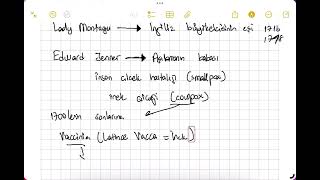 Lady Montagu → İngiliz büyükelçisinin eşi 1716
1718
Edward Jenner → Aşılamanın babası
insan çiçek hastalığı (smallpox)
inek çiçeği (cowpox)
1700'lerin sonlarına
Vaccinia (Latince Vacca = İnek)